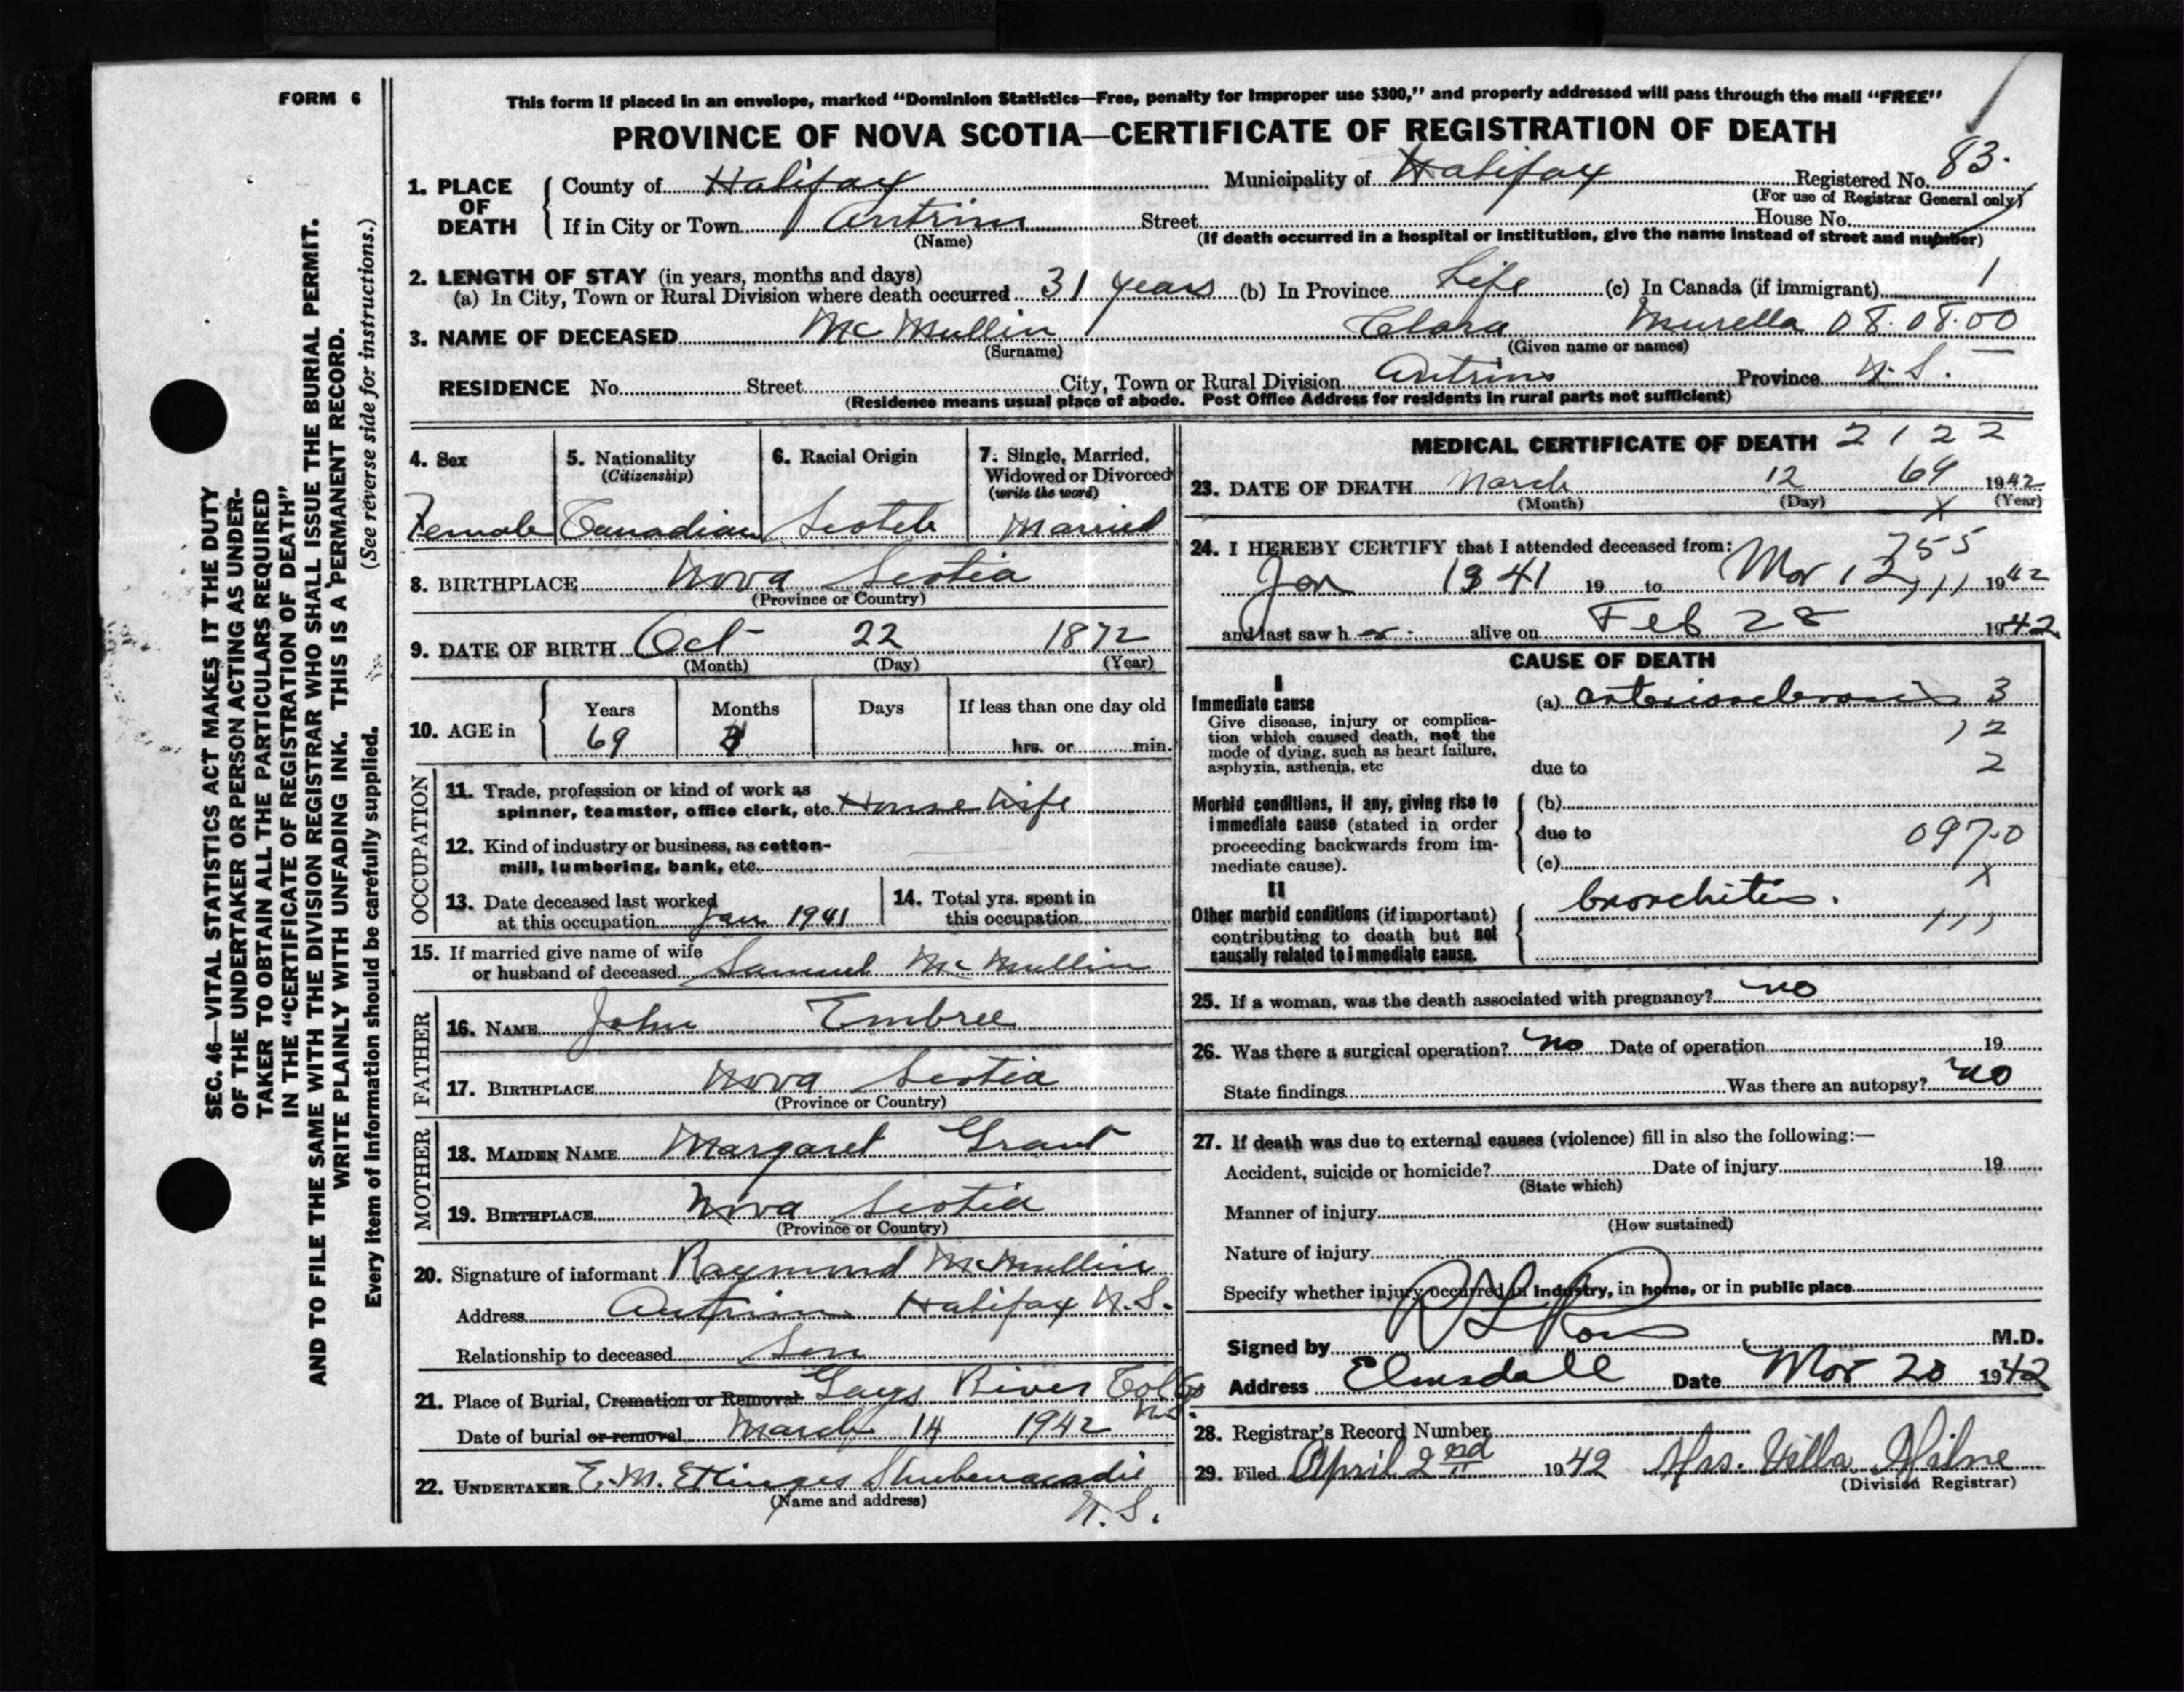 FORM 6
This form if placed in an envelope, marked "Dominion Statistics—Free, penalty for improper use $300," and properly addressed will pass through the mail "FREE"
PROVINCE OF NOVA SCOTIA—CERTIFICATE OF REGISTRATION OF DEATH
SEC. 46—VITAL STATISTICS ACT MAKES IT THE DUTY
OF THE UNDERTAKER OR PERSON ACTING AS UNDER-
TAKER TO OBTAIN ALL THE PARTICULARS REQUIRED
IN THE "CERTIFICATE OF REGISTRATION OF DEATH"
AND TO FILE THE SAME WITH THE DIVISION REGISTRAR WHO SHALL ISSUE THE BURIAL PERMIT.
WRITE PLAINLY WITH UNFADING INK. THIS IS A PERMANENT RECORD.
Every item of information should be carefully supplied. (See reverse side for instructions.)
1. PLACE OF DEATH
County of Halifax Municipality of Halifax Registered No. 83.
(For use of Registrar General only)
If in City or Town Antrim Street House No.
(Name) (If death occurred in a hospital or institution, give the name instead of street and number)
2. LENGTH OF STAY (in years, months and days)
(a) In City, Town or Rural Division where death occurred 31 years (b) In Province Life (c) In Canada (if immigrant) 1
3. NAME OF DECEASED McMullin Clara Murella 08.08.00
(Surname) (Given name or names)
RESIDENCE No. Street City, Town or Rural Division Antrim Province N.S.
(Residence means usual place of abode. Post Office Address for residents in rural parts not sufficient)
4. Sex
Female
5. Nationality
(Citizenship)
Canadian
6. Racial Origin
Scotch
7. Single, Married,
Widowed or Divorced
(write the word)
Married
8. BIRTHPLACE Nova Scotia
(Province or Country)
9. DATE OF BIRTH Oct 22 1872
(Month) (Day) (Year)
10. AGE in
Years Months Days If less than one day old
69 4 hrs. or min.
OCCUPATION
11. Trade, profession or kind of work as
spinner, teamster, office clerk, etc. House Wife
12. Kind of industry or business, as cotton-
mill, lumbering, bank, etc.
13. Date deceased last worked
at this occupation Jan 1941
14. Total yrs. spent in
this occupation
15. If married give name of wife
or husband of deceased Samuel McMullin
FATHER
16. NAME John Embree
17. BIRTHPLACE Nova Scotia
(Province or Country)
MOTHER
18. MAIDEN NAME Margaret Grant
19. BIRTHPLACE Nova Scotia
(Province or Country)
20. Signature of informant Raymond McMullin
Address Antrim Halifax N.S.
Relationship to deceased Son
21. Place of Burial, Cremation or Removal Gays River Col Co
N.S.
Date of burial or removal March 14 1942
22. UNDERTAKER E.M. Ettinger Shubenacadie
(Name and address)
N.S.
MEDICAL CERTIFICATE OF DEATH 2122
23. DATE OF DEATH March 12 69 1942
(Month) (Day) (Year)
X
24. I HEREBY CERTIFY that I attended deceased from: 755
Jan 1941 19 to Mar 12 1942
and last saw h er alive on Feb 28 1942
CAUSE OF DEATH
I
Immediate cause
Give disease, injury or complica-
tion which caused death, not the
mode of dying, such as heart failure,
asphyxia, asthenia, etc
(a) arteriosclerosis 3
12
due to 2
Morbid conditions, if any, giving rise to
immediate cause (stated in order
proceeding backwards from im-
mediate cause).
(b)
due to 097.0
(c)
X
II
Other morbid conditions (if important)
contributing to death but not
causally related to immediate cause.
bronchitis.
111
25. If a woman, was the death associated with pregnancy? no
26. Was there a surgical operation? no Date of operation 19
State findings Was there an autopsy? no
27. If death was due to external causes (violence) fill in also the following:—
Accident, suicide or homicide? Date of injury 19
(State which)
Manner of injury
(How sustained)
Nature of injury
Specify whether injury occurred in industry, in home, or in public place
Signed by M.D.
Address Elmsdale Date Mar 20 1942
28. Registrar's Record Number
29. Filed April 2nd 1942 Mrs. Villa Milne
(Division Registrar)